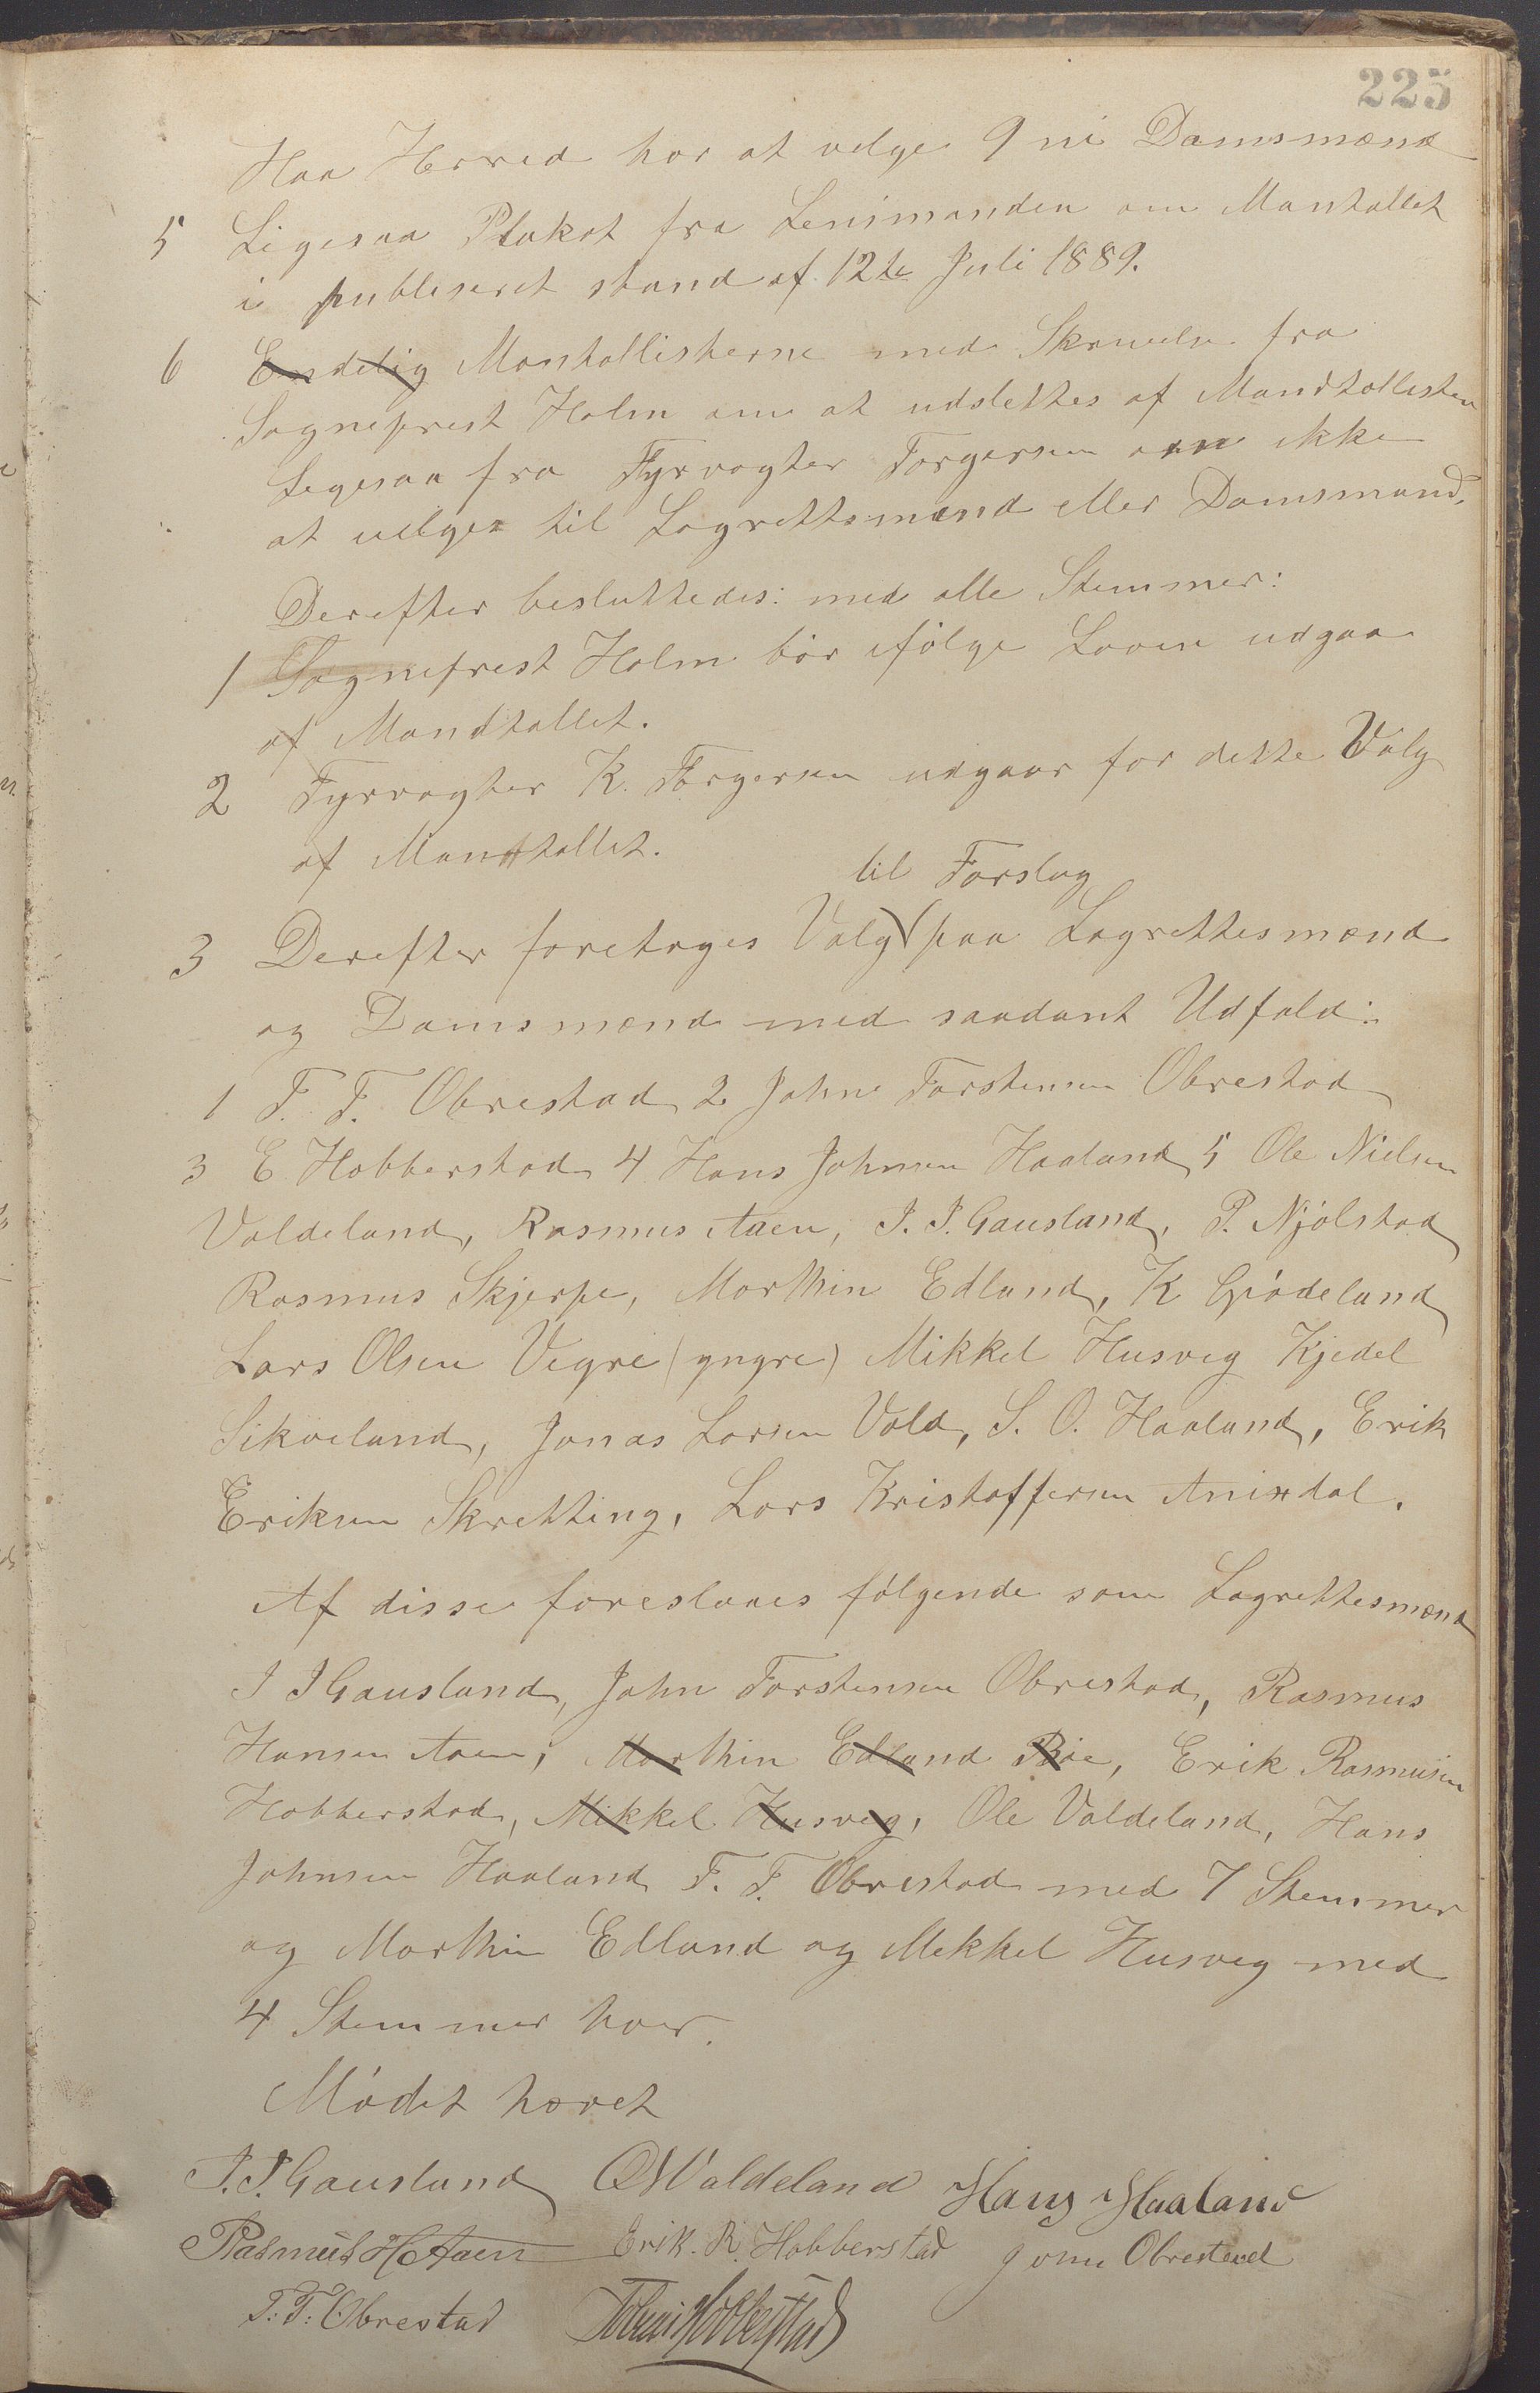 225
Haa Herred har at velge 9 ni Domsmænd
5 Ligesaa Plakat fra Lensmanden om Mantallet
i publiseret stand af 12te Juli 1889.
6 Endelig Mantallisterne med Skrivelse fra
Sogneprest Holm om at udslettes af Mandtallisten
Ligesaa fra Fyrvogter Torgersen om ikke
at velges til Lagrettsmænd eller Domsmænd.
Derefter besluttedes: med alle Stemmer:
1 Sogneprest Holm bør ifølge Loven udgaa
af Mandtallet.
2 Fyrvogter K. Torgersen udgaar for dette Valg
af Mandtallet.
til Forslag
3 Derefter foretoges Valg paa Lagrettesmænd
og Domsmænd med saadant Udfald:
1 T. T. Obrestad 2 John Torstensen Obrestad
3 E Hobberstad 4 Hans Johnsen Haaland 5 Ole Nielsen
Valdeland, Rasmus Aaen, I. I. Gausland, P. Njølstad
Rasmus Skjerpe, Morthin Edland, K Grødeland
Lars Olsen Vigre (yngre) Mikkel Husveg Kjedel
Sikveland, Jonas Larsen Vold, S. O. Haaland, Erik
Eriksen Skretting, Lars Kristoffersen Anisdal.
Af disse foreslaaes følgende som Lagrettesmænd
I I Gausland, John Torstensen Obrestad, Rasmus
Hansen Aaen, Morthin Edland Bøe, Erik Rasmusen
Hobberstad, Mikkel Husveg, Ole Valdeland, Hans
Johnsen Haaland T. T. Obrestad med 7 Stemmer
og Morthin Edland og Mikkel Husveg med
4 Stemmer hver.
Mødet hævet
I. I. Gausland O N Valdeland Hans Haaland
Rasmus H Aaen Erik. R. Hobberstad John Obrestad
T. T. Obrestad Hobberstad